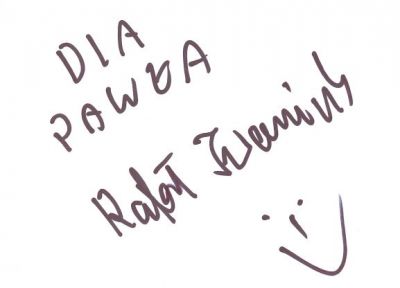 DLA
PAWŁA
Rafał Iwaniuk